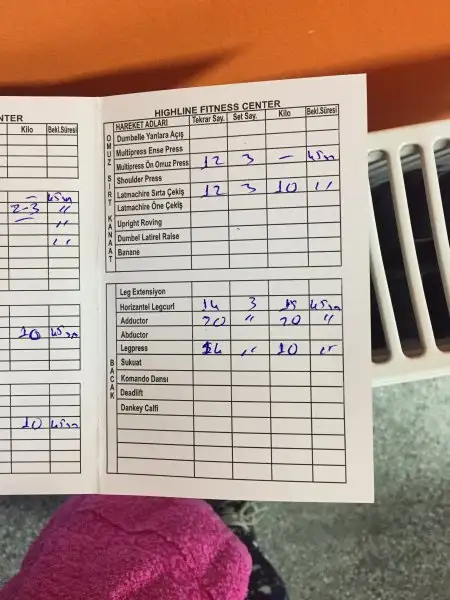 NTER
Kilo Bekl.Süresi
— 45sn
2-3 "
"
"
10 45sn
10 45sn
HIGHLINE FITNESS CENTER
HAREKET ADLARI Tekrar Say. Set Say. Kilo Bekl.Süresi
OMUZ SIRT KANAAT
Dumbelle Yanlara Açış
Multipress Ense Press
Multipress Ön Omuz Press 12 3 — 45sn
Shoulder Press
Latmachire Sırta Çekiş 12 3 10 "
Latmachire Öne Çekiş
Upright Roving
Dumbel Latirel Raise
Banane
BACAK
Leg Extensiyon
Horizantel Legcurf 14 3 15 45sn
Adductor 20 " 20 "
Abductor
Legpress 14 " 10 "
Sukuat
Komando Dansı
Deadlift
Dankey Calfi